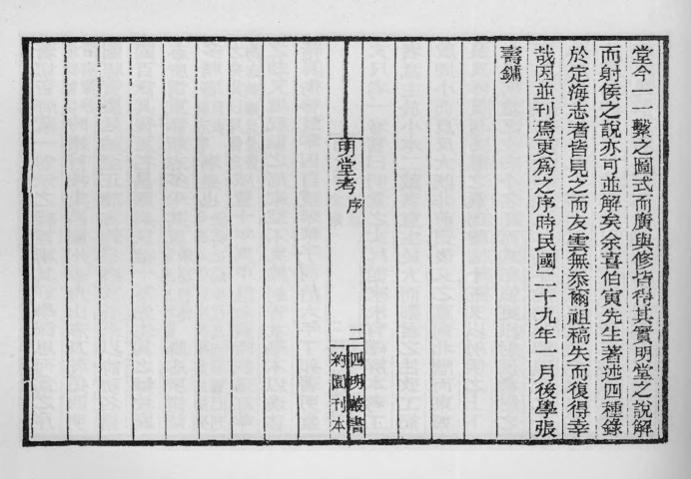 堂今一一繫之圖式而廣與修皆得其實明堂之說解
而射侯之說亦可並解矣余喜伯寅先生著述四種錄
於定海志者皆見之而友雲無忝爾祖稿失而復得幸
哉因並刊焉更為之序時民國二十九年一月後學張
壽鏞
明堂考 序
二
四明叢書
約園刊本